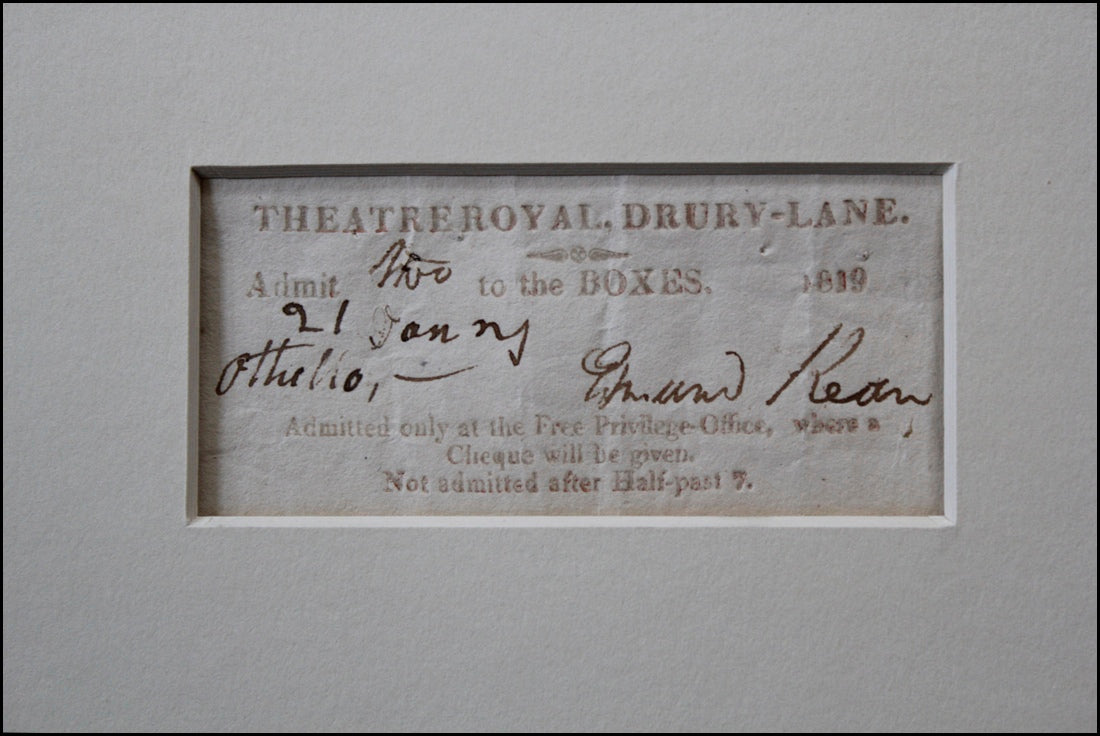 THEATRE ROYAL, DRURY-LANE.
Admit two to the BOXES. 1819
21 Janny
Othello, — Edmund Kean
Admitted only at the Free Privilege-Office, where a
Cheque will be given.
Not admitted after Half-past 7.